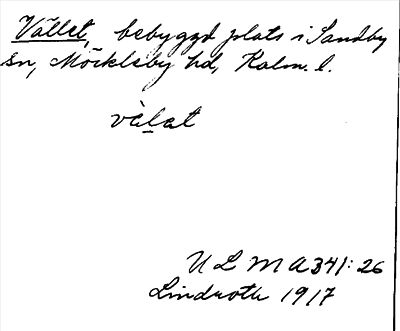 Vället, bebyggd plats i Sandby
sn, Möckleby hd, Kalm. l.
vàlat
ULMA 341:26
Lindroth 1917